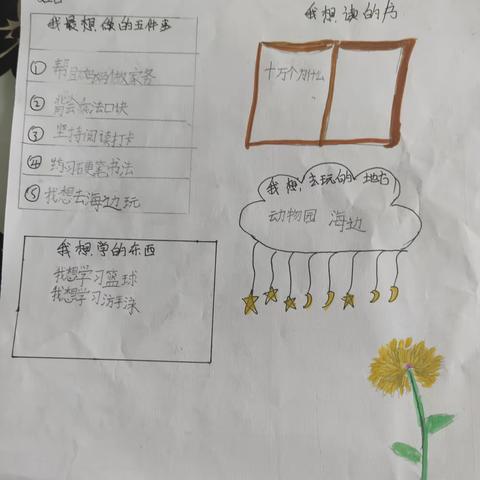 我最想做的五件事
我想读的书
① 帮助妈妈做家务
② 背会乘法口块
③ 坚持阅读打卡
④ 练习硬笔书法
⑤ 我想去海边玩
十万个为什么
我想去玩的地方
动物园 海边
我想学的东西
我想学习篮球
我想学习游泳